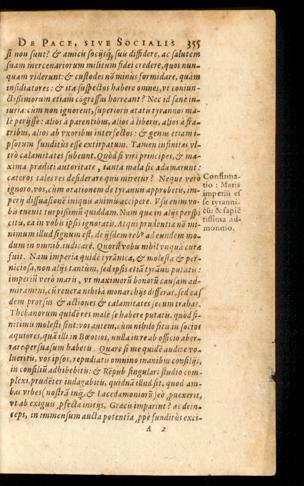 DE PACE, SIVE SOCIALIS 355
si non sunt? & amicis socijsq́, suis diffidere, ac salutem
suam mercenariorum militum fidei credere, quos nun-
quam viderunt: & custodes nō minùs formidare, quàm
insidiatores: & ita suspectos habere omnes, vt coniun-
ctissimorum etiam cōgressum horreant? Nec id sanè in-
iuria: cùm non ignorent, superioris ætatis tyrannos ma-
lè perijsse: alios à parentibus, alios à liberis, alios à fra-
tribus, alios ab vxoribus interfectos: & genus etiam i-
psorum funditus esse extirpatum. Tamen infinitas vl-
trò calamitates subeunt. Quòd si viri principes, & ma-
xima præditi autoritate, tanta mala sic adamarunt:
ceteros tales res desiderare quis miretur? Neque verò
ignoro, vos, cùm orationem de tyrannis approbetis, im-
perij dissuasionē iniquis animis accipere. Vsu enim vo-
bis euenit turpissimū quiddam. Nam quæ in alijs perspi
citis, ea in vobis ipsis ignoratis. Atqui prudentiæ nō mi-
nimum illud signum est, de ijsdem reb⁹ eodem modo
dum in omnib. iudicare. Quorū vobis nihil vnquā curæ
fuit. Nam imperia quidē tyrānica, & molesta & per-
niciosa, non alijs tantum, sed ipsis etiā tyrānis putatis:
imperiū verò maris, vt maximorū bonorū causam ad-
miramini, cū tamen nihil à monarchijs differat, sed eas-
dem prorsus & actiones & calamitates secum trahat.
Thebanorum quidē res malè se habere putatis, quòd fi-
nitimis molesti sint: vos autem, cùm nihilo sitis in socios
æquiores, quā illi in Bœotios, nulla in re ab officio aber-
rare persuasum habetis. Quare si me quidē audire vo-
lueritis, vos ipsos, repudiatis omnino inanibus consilijs,
in consiliū adhibebitis: & Rēpub. singulari studio com-
plexi, prudēter indagabitis, quidnā illud sit, quod am-
bas vrbes (nostrā inq̄, & Lacedæmoniorū) eò prouexerit,
vt ab exiguis pfecta initijs, Græcis imperarint? ac dein-
ceps, in immensum aucta potentia, ppè funditùs exci-
A 2
Confirma-
tio: Maris
imperiū es
se tyranni-
cū: & sapiē
tissima ad-
monitio.